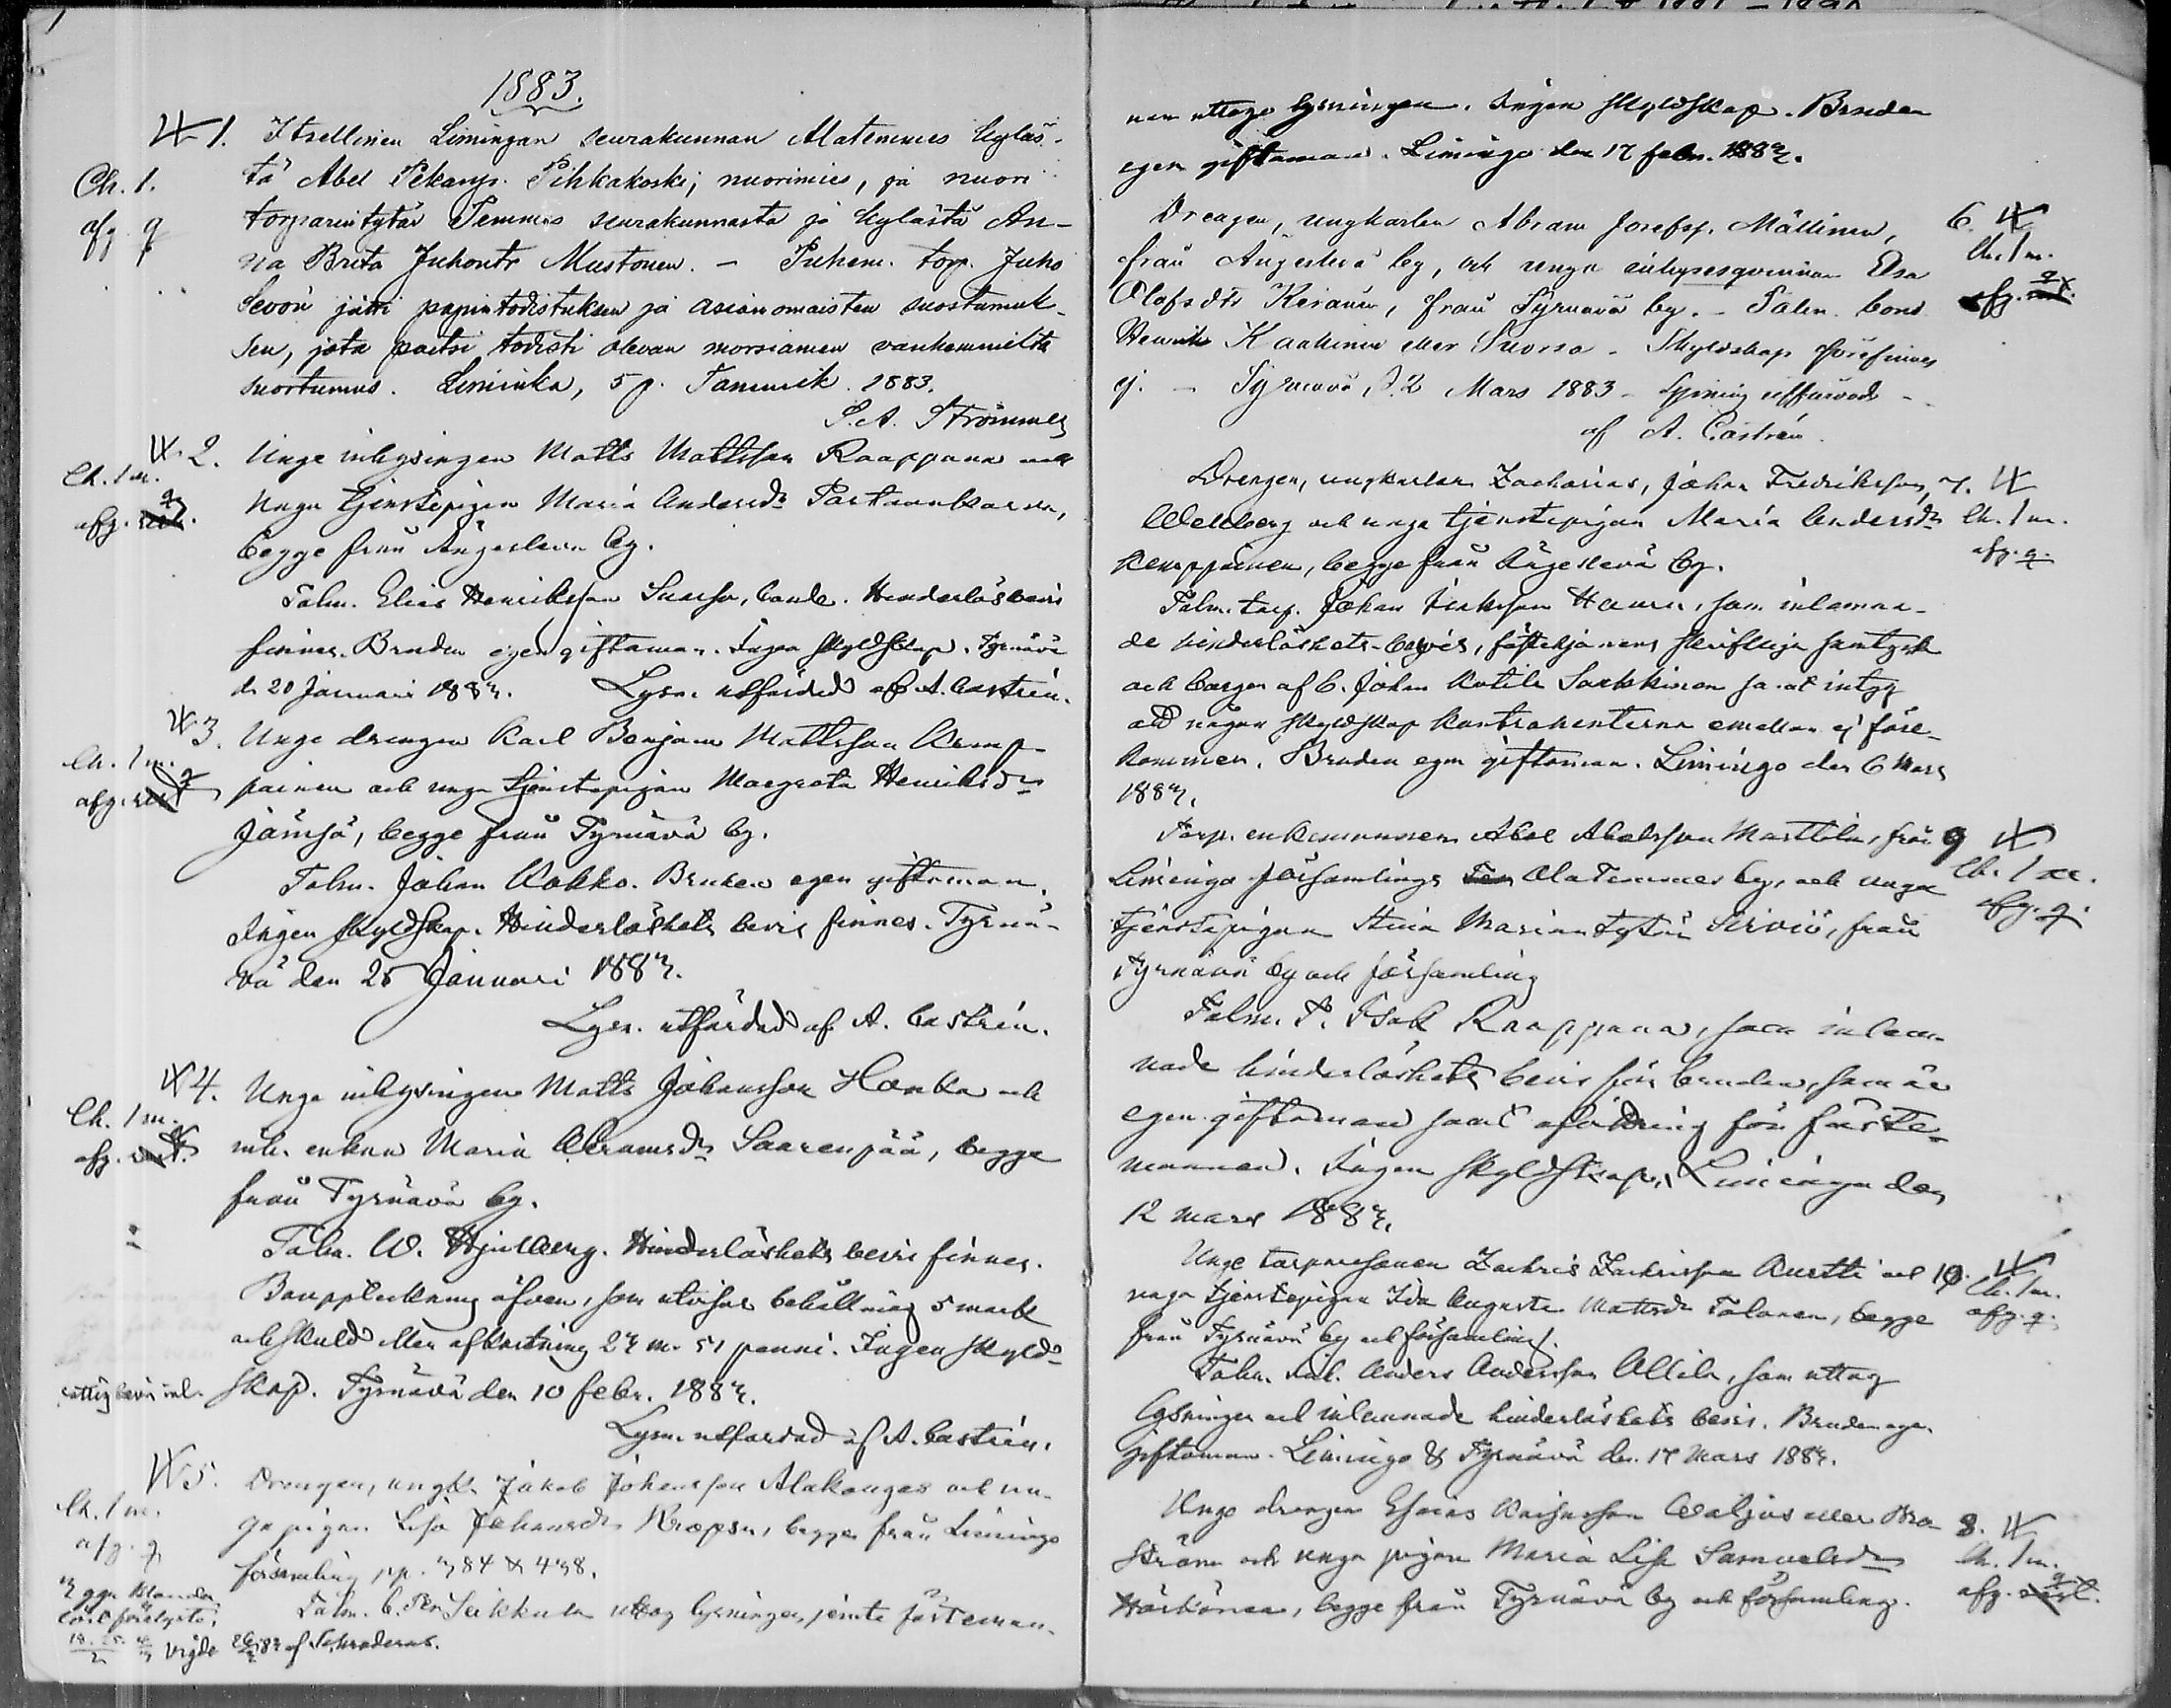 1883.
1. Itsellinen Limingan seurakunnan Alatemmes kyläs-
Ch. 1.
tä Abel Pekanp. Pihkakoski, nuorimies, ja nuori
afg. q
torpparintytär Temmes seurakunnasta ja kylästä An-
na Brita Juhontr Mustonen. - Puhem. torp. Juho
Sevón jätti papintodistuksen ja asianomaisten suostumuk-
sen, jota paitsi todisti olevan morsiamen vanhemmilta
suostumus. Liminka, 5 p. Tammik. 1883.
S. A. Strömmer
2. Unge inhysingen Matts Mattsson Raappana och
Ch. 1 m.
unga tjenstepigan Maria Andersdr Partaankarva,
afg. q
begge från Ängeslevä by.
Talm. Elias Henriksson Suorsa, bonde. Hinderlös bevis
finnes. Bruden egen giftoman. Ingen skyldskap. Tyrnävä
d. 20 Januari 1883. Lysn. utfärdad af A. Castrén.
3. Unge drengen Karl Benjam Mattsson Kemp-
Ch. 1 m.
painen och unga tjenstepigan Margreta Henriksdr
afg. q
Jämsä, begge från Tyrnävä by.
Talm. Johan Kokko. Bruden egen giftoman.
Ingen skyldskap. Hinderlöshets bevis finnes. Tyrnä-
vä den 25 Januari 1883.
Lysn. utfärdad af A. Castrén.
4. Unge inhysingen Matts Johansson Honka och
Ch. 1 m.
inh. enkan Maria Abramsdr Saarenpää, begge
afg.
från Tyrnävä by.
Talm. W. Hjulberg. Hinderlöshets bevis finnes.
Bouppteckning äfven, som utvisar behållning 5 mark
och skuld eller afkortning 23 m. 51 penni. Ingen skyld-
bevis inl. skap. Tyrnävä den 10 febr. 1883.
Lysn. utfärdad af A. Castrén.
5. Drengen, ungk. Jakob Johansson Alakangas och un-
Ch. 1 m.
ga pigan Lisa Johansdr Kropsu, begge från Limingo
afg. q
församling pp. 384 & 438.
Talm. b. Per Seikkula uttog lysningen jemte fästeman-
vigde af Schroderus.
nen uttogo lysningen. Ingen skyldskap. Bruden
egen giftoman. Limingo den 17 febr. 1883.
Drengen, ungkarlen Abram Josefsp. Mällinen, 6.
från Ängeslevä by, och unga inhysesqvinnan Elsa Ch. 1 m.
Olofsdtr Keränen, från Tyrnävä by. - Talm. bond. afg. q
Henrik Kaakinen eller Suorsa. Skyldskap förefinnes
ej. - Tyrnävä, d. 2 Mars 1883 - Lysning utfärdad -
af A. Castrén.
Drengen, ungkarlen Zacharias, Johan Fredriksson, 7.
Wellberg och unga tjenstepigan Maria Andersdr Ch. 1 m.
Kemppainen, begge från Ängeslevä by. afg. q.
Talm. torp. Johan Henrikson Hannu, som inlemna-
de hinderlöshets-bevis, fästehjonens skriftliga samtycke
och borgen af b. Johan Kotila Sarkkinen samt intyg
att någon skyldskap kontrahenterna emellan ej före-
kommer. Bruden egen giftoman. Limingo den 6 Mars
1883.
Torp. enkemannen Abel Abelsson Marttila, från 9
Limingo församlings Ala Temmes by, och unga Ch. 1 m.
tjenstepigan Stina Mariantytär Sirviö, från afg. q.
Tyrnävä by och församling
Talm. T. Isak Raappana, som inlem-
nade hinderlöshets bevis för bruden, som är
egen giftoman samt afvittring för fäste-
mannen. Ingen skyldskap. Limingo den
12 mars 1883.
Unge torparesonen Zachris Zachrisson Kurtti och 10.
unga tjenstepigan Ida Augusta Mattsdr Tolonen, begge Ch. 1 m.
från Tyrnävä by och församling. afg. q.
Talm. inh. Anders Andersson Ollila, som uttog
lysningen och inlemnade hinderlöshets bevis. Bruden egen
giftoman. Limingo & Tyrnävä den 17 Mars 1883.
Unge drengen Esaias Kaisasson Waljus eller Bro- 8.
ström och unga pigan Maria Lisa Samuelsdr Ch. 1 m.
Härkönen, begge från Tyrnävä by och församling. afg. q